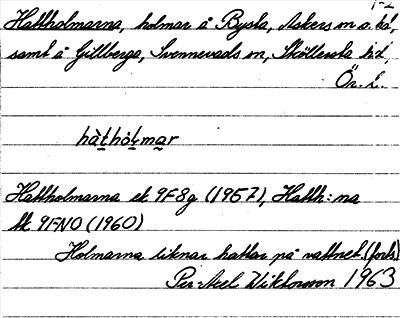 1-2
Hattholmarna, holmar å Bysta, Askers sn o. hd,
samt å Gillberga, Svennevads sn, Sköllersta hd,
Ör. L.
hàthòlmar
Hattholmarna ek 9F8g (1957), Hatth:na
tk 9FNO (1960)
Holmarna liknar hattar på vattnet. (forts)
Per-Axel Wiktorsson 1963